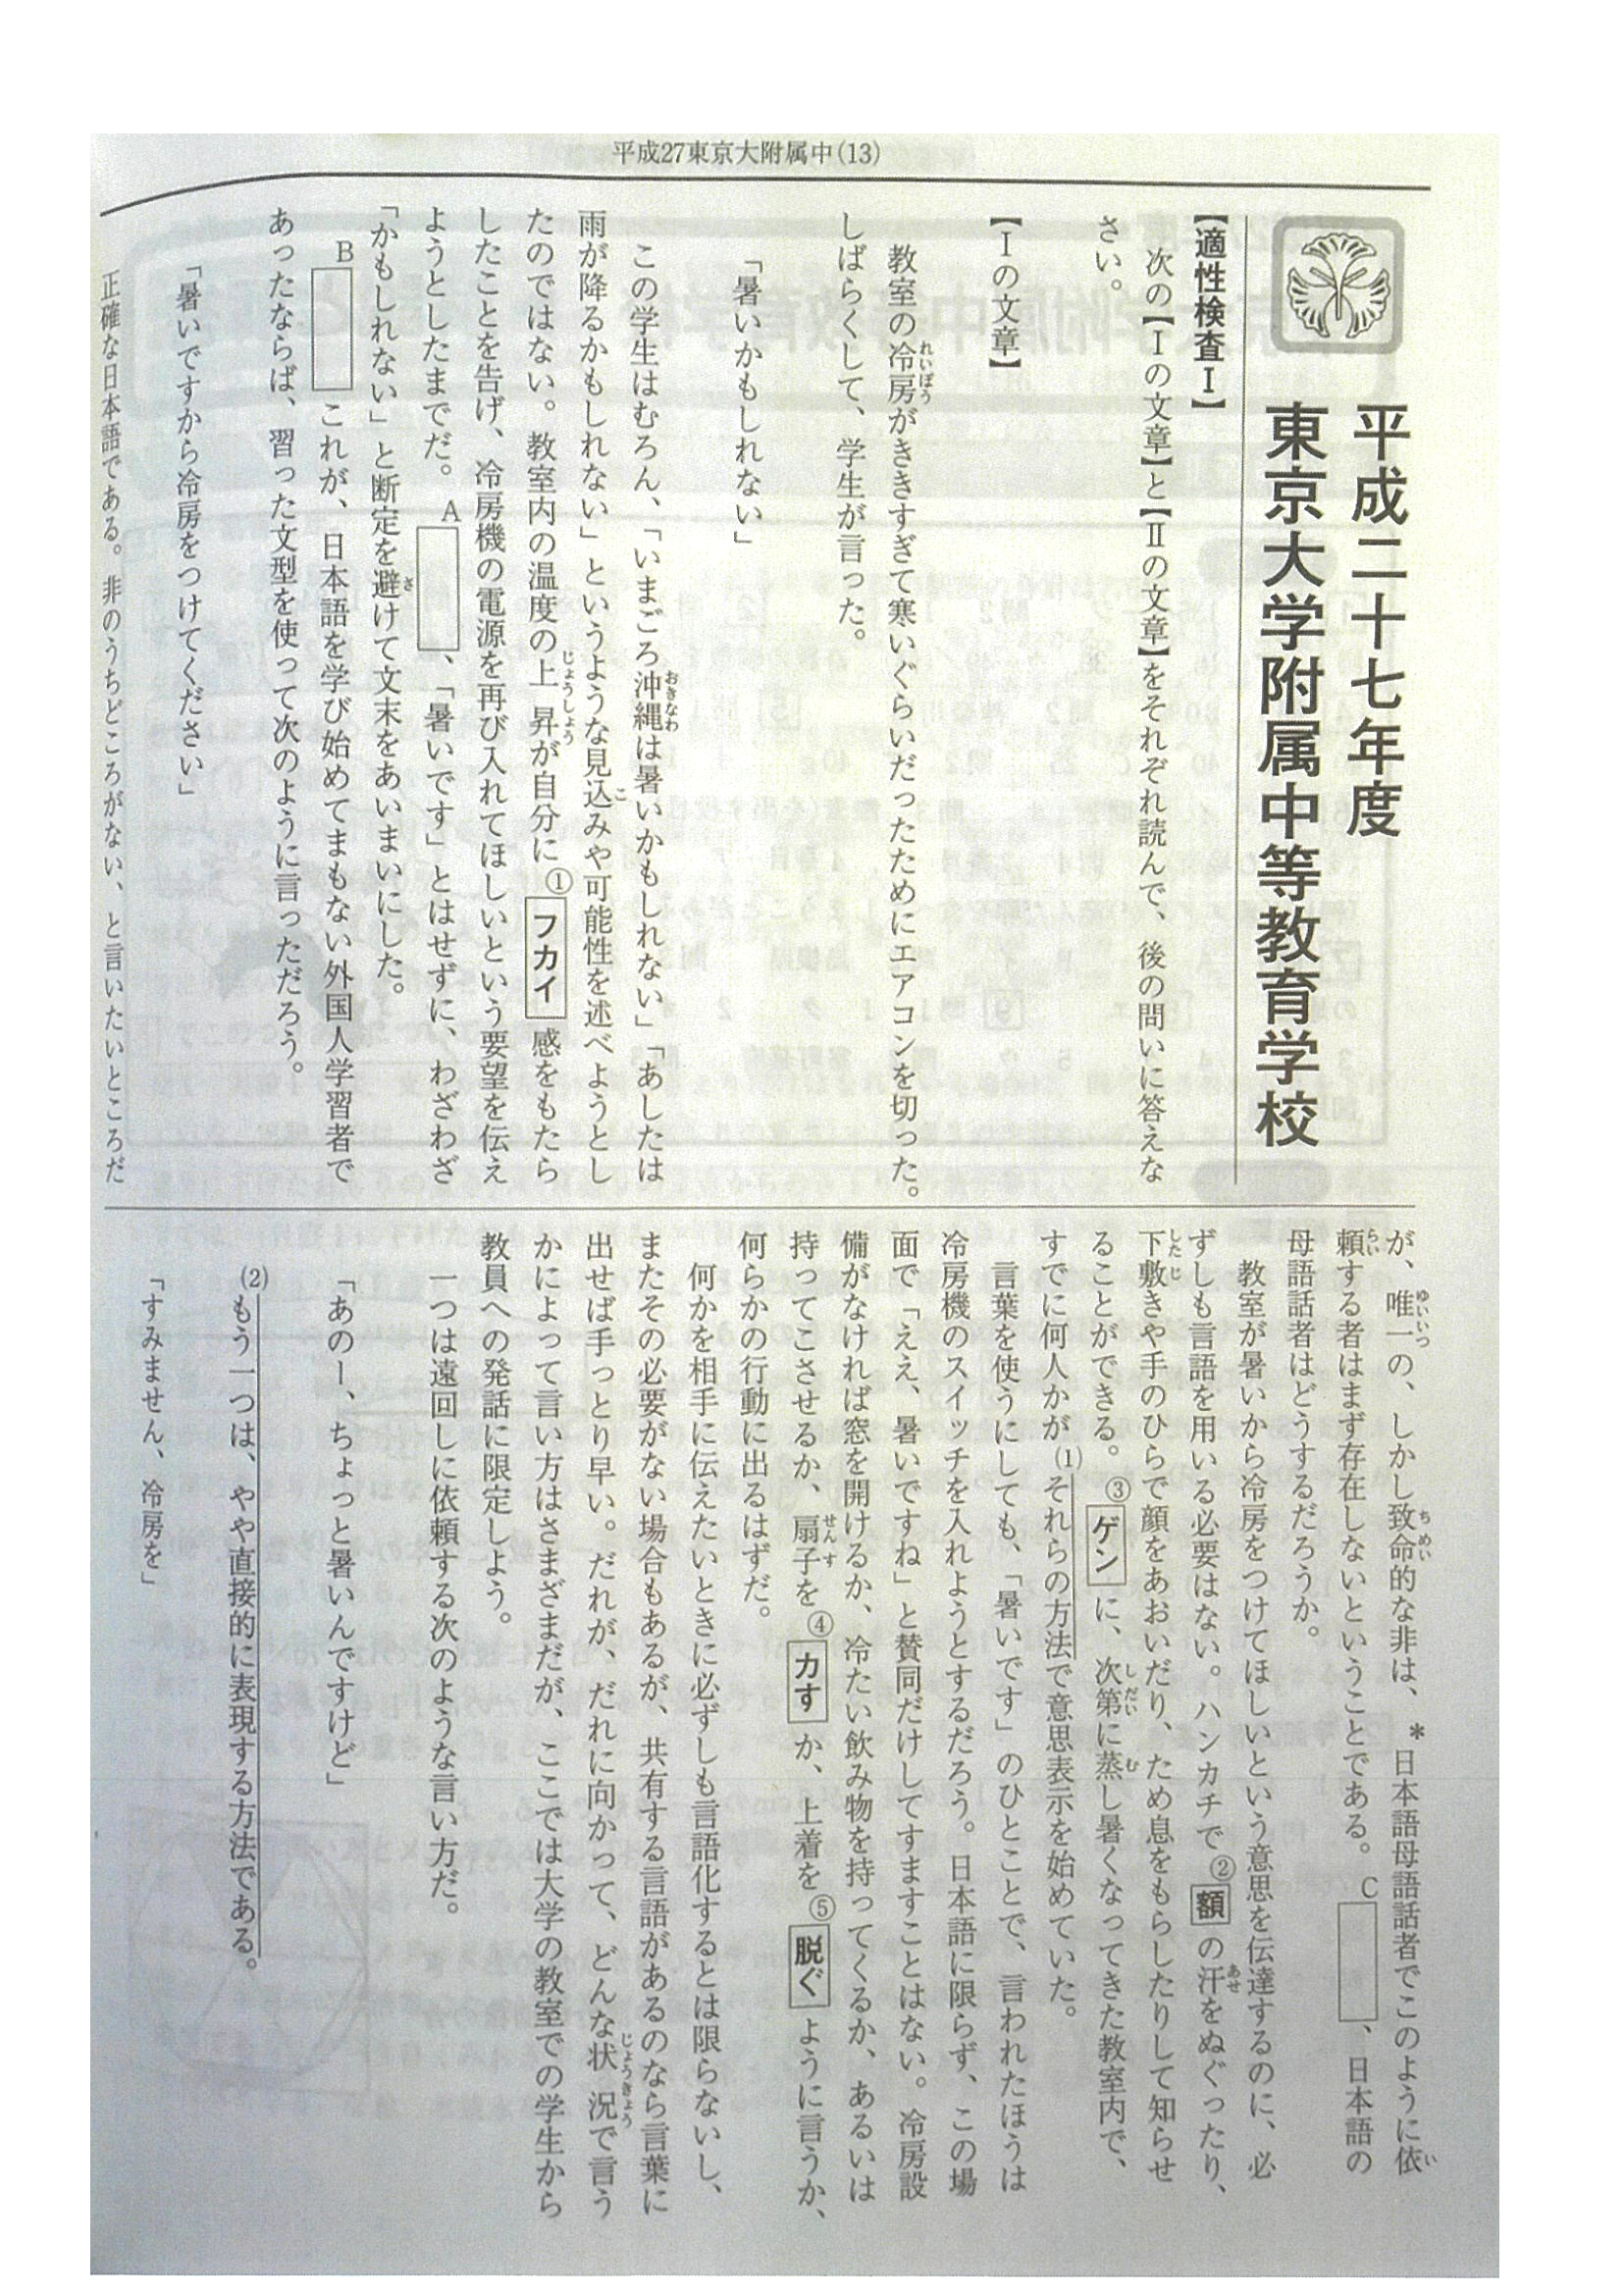 平成27東京大附属中(13)
平成二十七年度
東京大学附属中等教育学校
【適性検査Ⅰ】
次の【Ⅰの文章】と【Ⅱの文章】をそれぞれ読んで、後の問いに答えな
さい。
【Ⅰの文章】
教室の冷房がききすぎて寒いぐらいだったためにエアコンを切った。
しばらくして、学生が言った。
「暑いかもしれない」
この学生はむろん、「いまごろ沖縄は暑いかもしれない」「あしたは
雨が降るかもしれない」というような見込みや可能性を述べようとし
たのではない。教室内の温度の上昇が自分に①フカイ感をもたら
したことを告げ、冷房機の電源を再び入れてほしいという要望を伝え
ようとしたまでだ。A、「暑いです」とはせずに、わざわざ
「かもしれない」と断定を避けて文末をあいまいにした。
B これが、日本語を学び始めてまもない外国人学習者で
あったならば、習った文型を使って次のように言っただろう。
「暑いですから冷房をつけてください」
正確な日本語である。非のうちどころがない、と言いたいところだ
が、唯一の、しかし致命的な非は、*日本語母語話者でこのように依
頼する者はまず存在しないということである。C、日本語の
母語話者はどうするだろうか。
教室が暑いから冷房をつけてほしいという意思を伝達するのに、必
ずしも言語を用いる必要はない。ハンカチで②額の汗をぬぐったり、
下敷きや手のひらで顔をあおいだり、ため息をもらしたりして知らせ
ることができる。③ゲンに、次第に蒸し暑くなってきた教室内で、
すでに何人かが(1)それらの方法で意思表示を始めていた。
言葉を使うにしても、「暑いです」のひとことで、言われたほうは
冷房機のスイッチを入れようとするだろう。日本語に限らず、この場
面で「ええ、暑いですね」と賛同だけしてすますことはない。冷房設
備がなければ窓を開けるか、冷たい飲み物を持ってくるか、あるいは
持ってこさせるか、扇子を④カすか、上着を⑤脱ぐように言うか、
何らかの行動に出るはずだ。
何かを相手に伝えたいときに必ずしも言語化するとは限らないし、
またその必要がない場合もあるが、共有する言語があるのなら言葉に
出せば手っとり早い。だれが、だれに向かって、どんな状況で言う
かによって言い方はさまざまだが、ここでは大学の教室での学生から
教員への発話に限定しよう。
一つは遠回しに依頼する次のような言い方だ。
「あのー、ちょっと暑いんですけど」
(2)もう一つは、やや直接的に表現する方法である。
「すみません、冷房を」